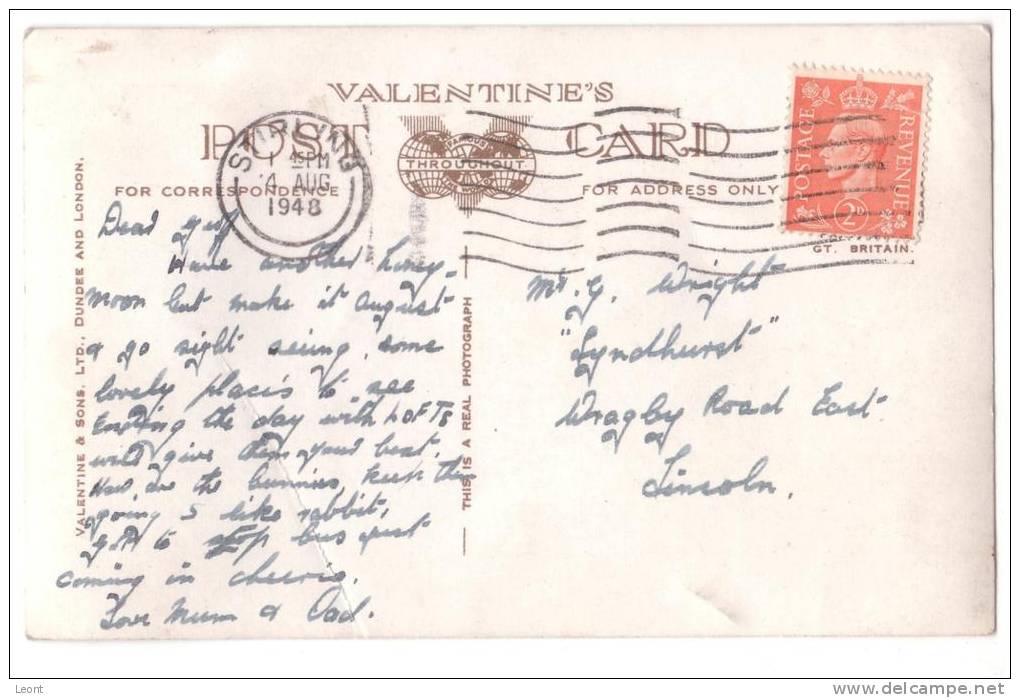 VALENTINE'S
POST CARD
FAMOUS
THROUGHOUT
THE WORLD
FOR CORRESPONDENCE
FOR ADDRESS ONLY
STIRLING
1 45PM
4 AUG
1948
POSTAGE REVENUE
2D
GT. BRITAIN.
VALENTINE & SONS, LTD., DUNDEE AND LONDON.
THIS IS A REAL PHOTOGRAPH
Dear Geoff
Have another honey-
moon but make it august
& go sight seeing, some
lovely places to see
Ending the day with LOFTS
will give them your best.
How are the bunnies, keep them
going I like rabbit,
got to stop bus just
coming in cheerio.
Love Mum & Dad.
Mr. G. Wright
"Lyndhurst"
Wragby Road East
Lincoln.
Leont
www.delcampe.net